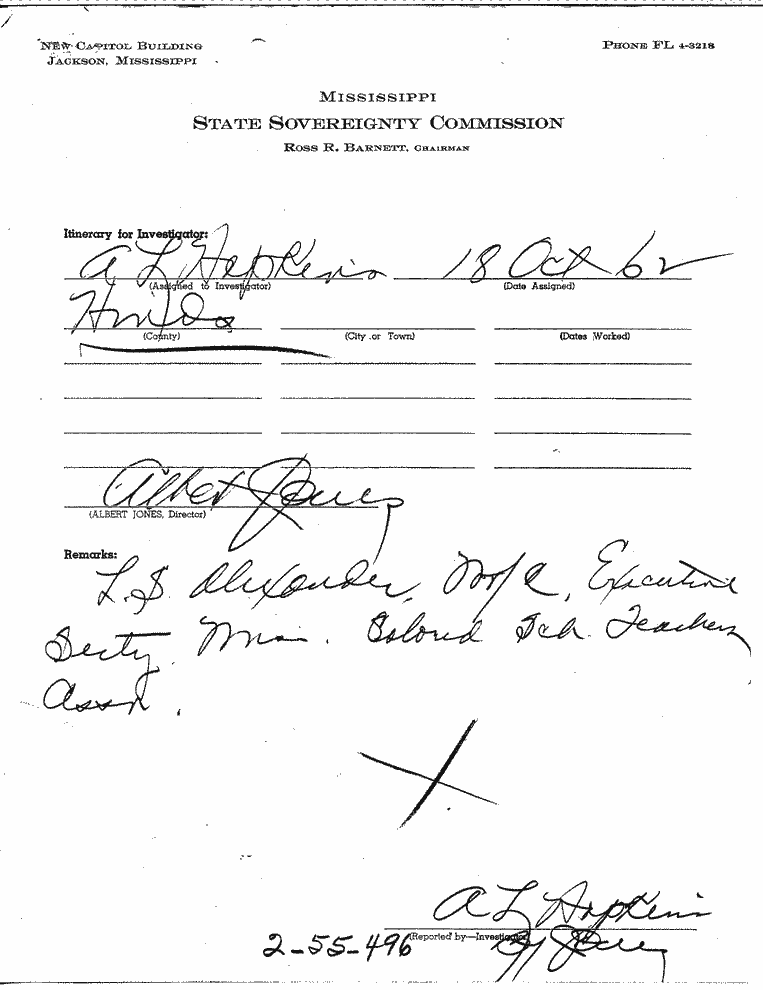 NEW CAPITOL BUILDING
JACKSON, MISSISSIPPI
PHONE FL 4-3218
MISSISSIPPI
STATE SOVEREIGNTY COMMISSION
ROSS R. BARNETT, CHAIRMAN
Itinerary for Investigator:
A L Hopkins 18 Oct 62
(Assigned to Investigator) (Date Assigned)
Hinds
(County) (City or Town) (Dates Worked)
Albert Jones
(ALBERT JONES, Director)
Remarks:
L.S. Alexander, M/C, Executive
Secty. Miss. Colored Sch. Teachers
Assn.
A L Hopkins
(Reported by—Investigator)
By Jones
2-55-496